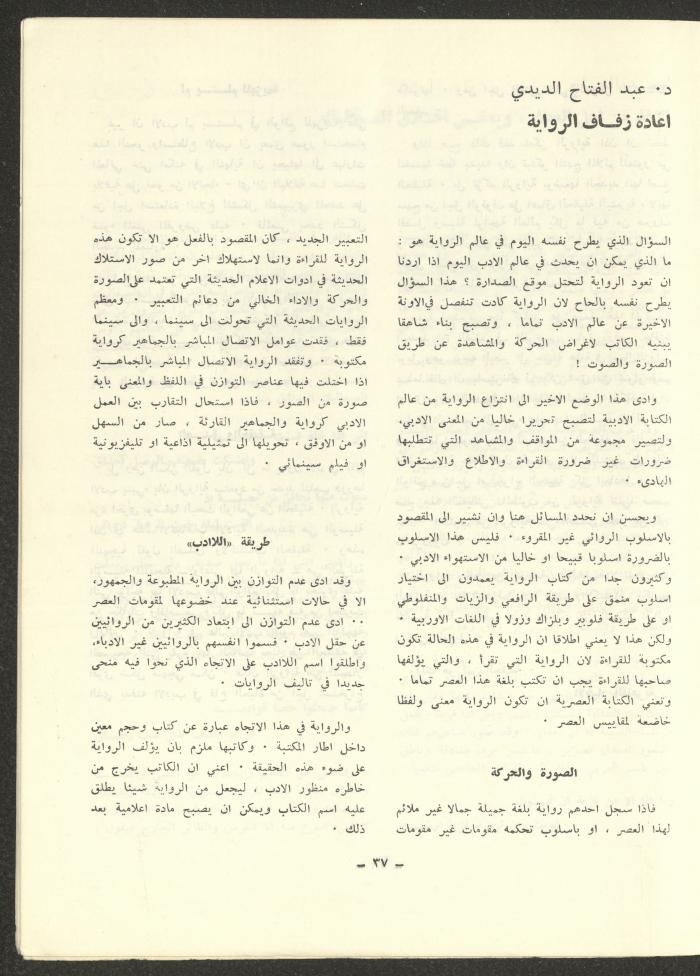 د٠ عبد الفتاح الديدي
اعادة زفاف الرواية
السؤال الذي يطرح نفسه اليوم في عالم الرواية هو :
ما الذي يمكن ان يحدث في عالم الادب اليوم اذا اردنا
ان تعود الرواية لتحتل موقع الصدارة ؟ هذا السؤال
يطرح نفسه بالحاح لان الرواية كادت تنفصل في الاونة
الاخيرة عن عالم الادب تماما ، وتصبح بناء شاهقا
يبنيه الكاتب لاغراض الحركة والمشاهدة عن طريق
الصورة والصوت !
وادى هذا الوضع الاخير الى انتزاع الرواية من عالم
الكتابة الادبية لتصبح تحريرا خاليا من المعنى الادبي،
ولتصير مجموعة من المواقف والمشاهد التي تتطلبها
ضرورات غير ضرورة القراءة والاطلاع والاستغراق
الهادىء ٠
ويحسن ان نحدد المسائل هنا وان نشير الى المقصود
بالاسلوب الروائي غير المقروء ٠ فليس هذا الاسلوب
بالضرورة اسلوبا قبيحا او خاليا من الاستهواء الادبي ٠
وكثيرون جدا من كتاب الرواية يعمدون الى اختيار
اسلوب منمق على طريقة الرافعي والزيات والمنفلوطي
او على طريقة فلوبير وبلزاك وزولا في اللغات الاوربية ٠
ولكن هذا لا يعني اطلاقا ان الرواية في هذه الحالة تكون
مكتوبة للقراءة لان الرواية التي تقرأ ، والتي يؤلفها
صاحبها للقراءة يجب ان تكتب بلغة هذا العصر تماما ٠
وتعني الكتابة العصرية ان تكون الرواية معنى ولفظا
خاضعة لمقاييس العصر ٠
الصورة والحركة
فاذا سجل احدهم رواية بلغة جميلة جمالا غير ملائم
لهذا العصر ، او باسلوب تحكمه مقومات غير مقومات
التعبير الجديد ، كان المقصود بالفعل هو الا تكون هذه
الرواية للقراءة وانما لاستهلاك اخر من صور الاستلاك
الحديثة في ادوات الاعلام الحديثة التي تعتمد على الصورة
والحركة والاداء الخالي من دعائم التعبير ٠ ومعظم
الروايات الحديثة التي تحولت الى سينما ، والى سينما
فقط ، فقدت عوامل الاتصال المباشر بالجماهير كرواية
مكتوبة ٠ وتفقد الرواية الاتصال المباشر بالجماهـــير
اذا اختلت فيها عناصر التوازن في اللفظ والمعنى باية
صورة من الصور ، فاذا استحال التقارب بين العمل
الادبي كرواية والجماهير القارئة ، صار من السهل
او من الاوفق ، تحويلها الى تمثيلية اذاعية او تليفزيونية
او فيلم سينمائي ٠
طريقة «اللاادب»
وقد ادى عدم التوازن بين الرواية المطبوعة والجمهور،
الا في حالات استثنائية عند خضوعها لمقومات العصر
٠٠ ادى عدم التوازن الى ابتعاد الكثيرين من الروائيين
عن حقل الادب ٠ فسموا انفسهم بالروائيين غير الادباء،
واطلقوا اسم اللادب على الاتجاه الذي نحوا فيه منحى
جديدا في تاليف الروايات ٠
والرواية في هذا الاتجاه عبارة عن كتاب وحجم معين
داخل اطار المكتبة ٠ وكاتبها ملزم بان يؤلف الرواية
على ضوء هذه الحقيقة ٠ اعني ان الكاتب يخرج من
خاطره منظور الادب ، ليجعل من الرواية شيئا يطلق
عليه اسم الكتاب ويمكن ان يصبح مادة اعلامية بعد
ذلك ٠
– ٣٧ –